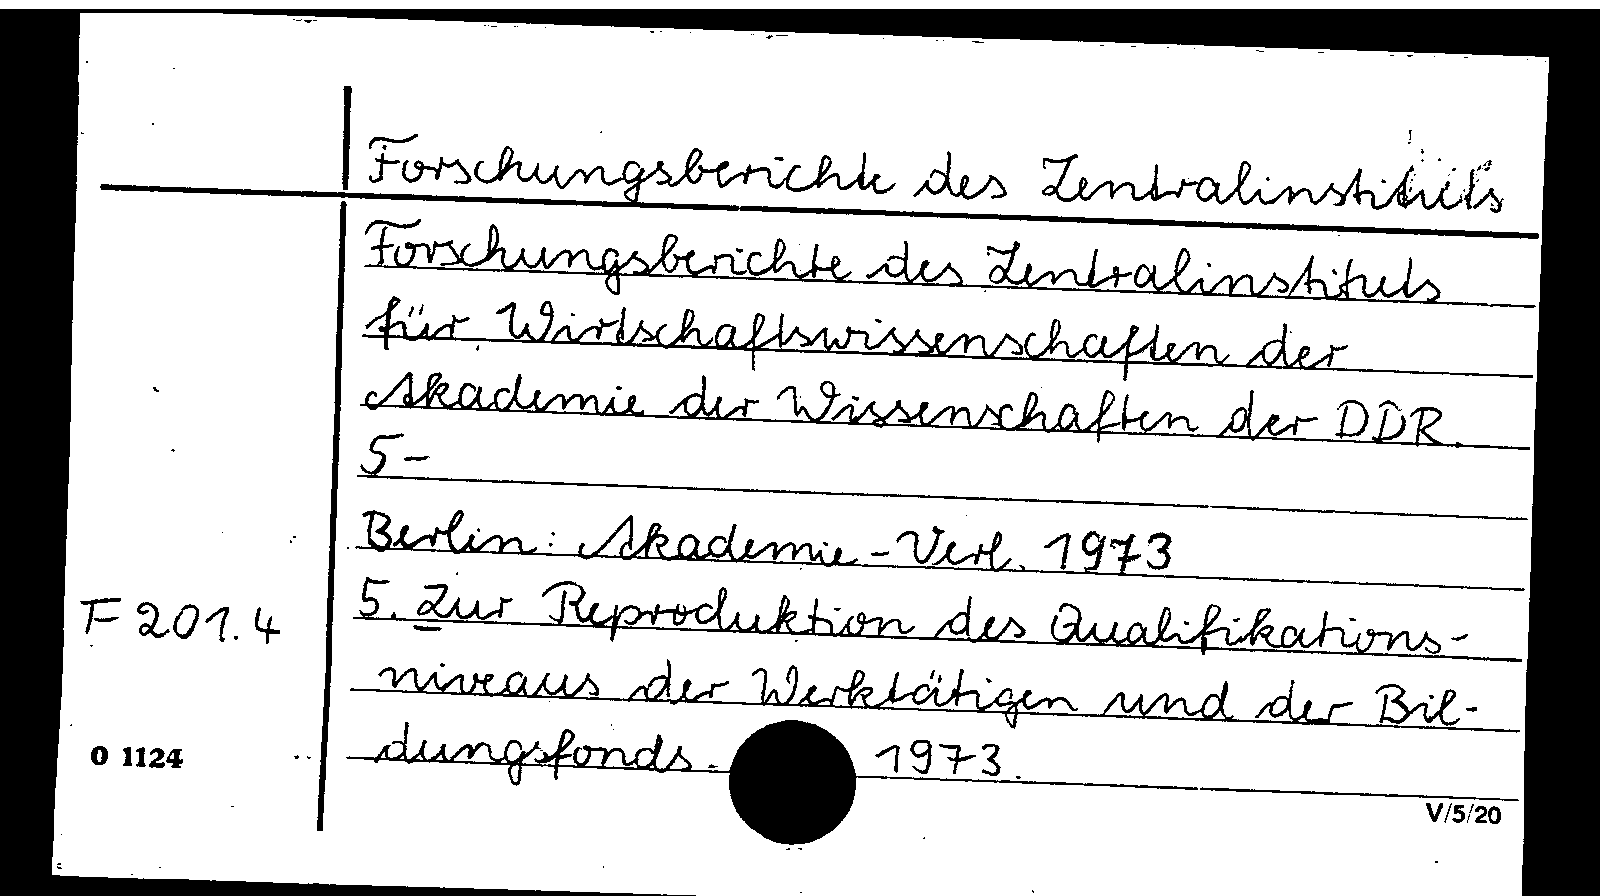 Forschungsberichte des Zentralinstituts
Forschungsberichte des Zentralinstituts
für Wirtschaftswissenschaften der
Akademie der Wissenschaften der DDR.
5-
Berlin: Akademie-Verl. 1973
F 201.4 5. Zur Reproduktion des Qualifikations-
niveaus der Werktätigen und der Bil-
O 1124 dungsfonds. 1973.
V/5/20